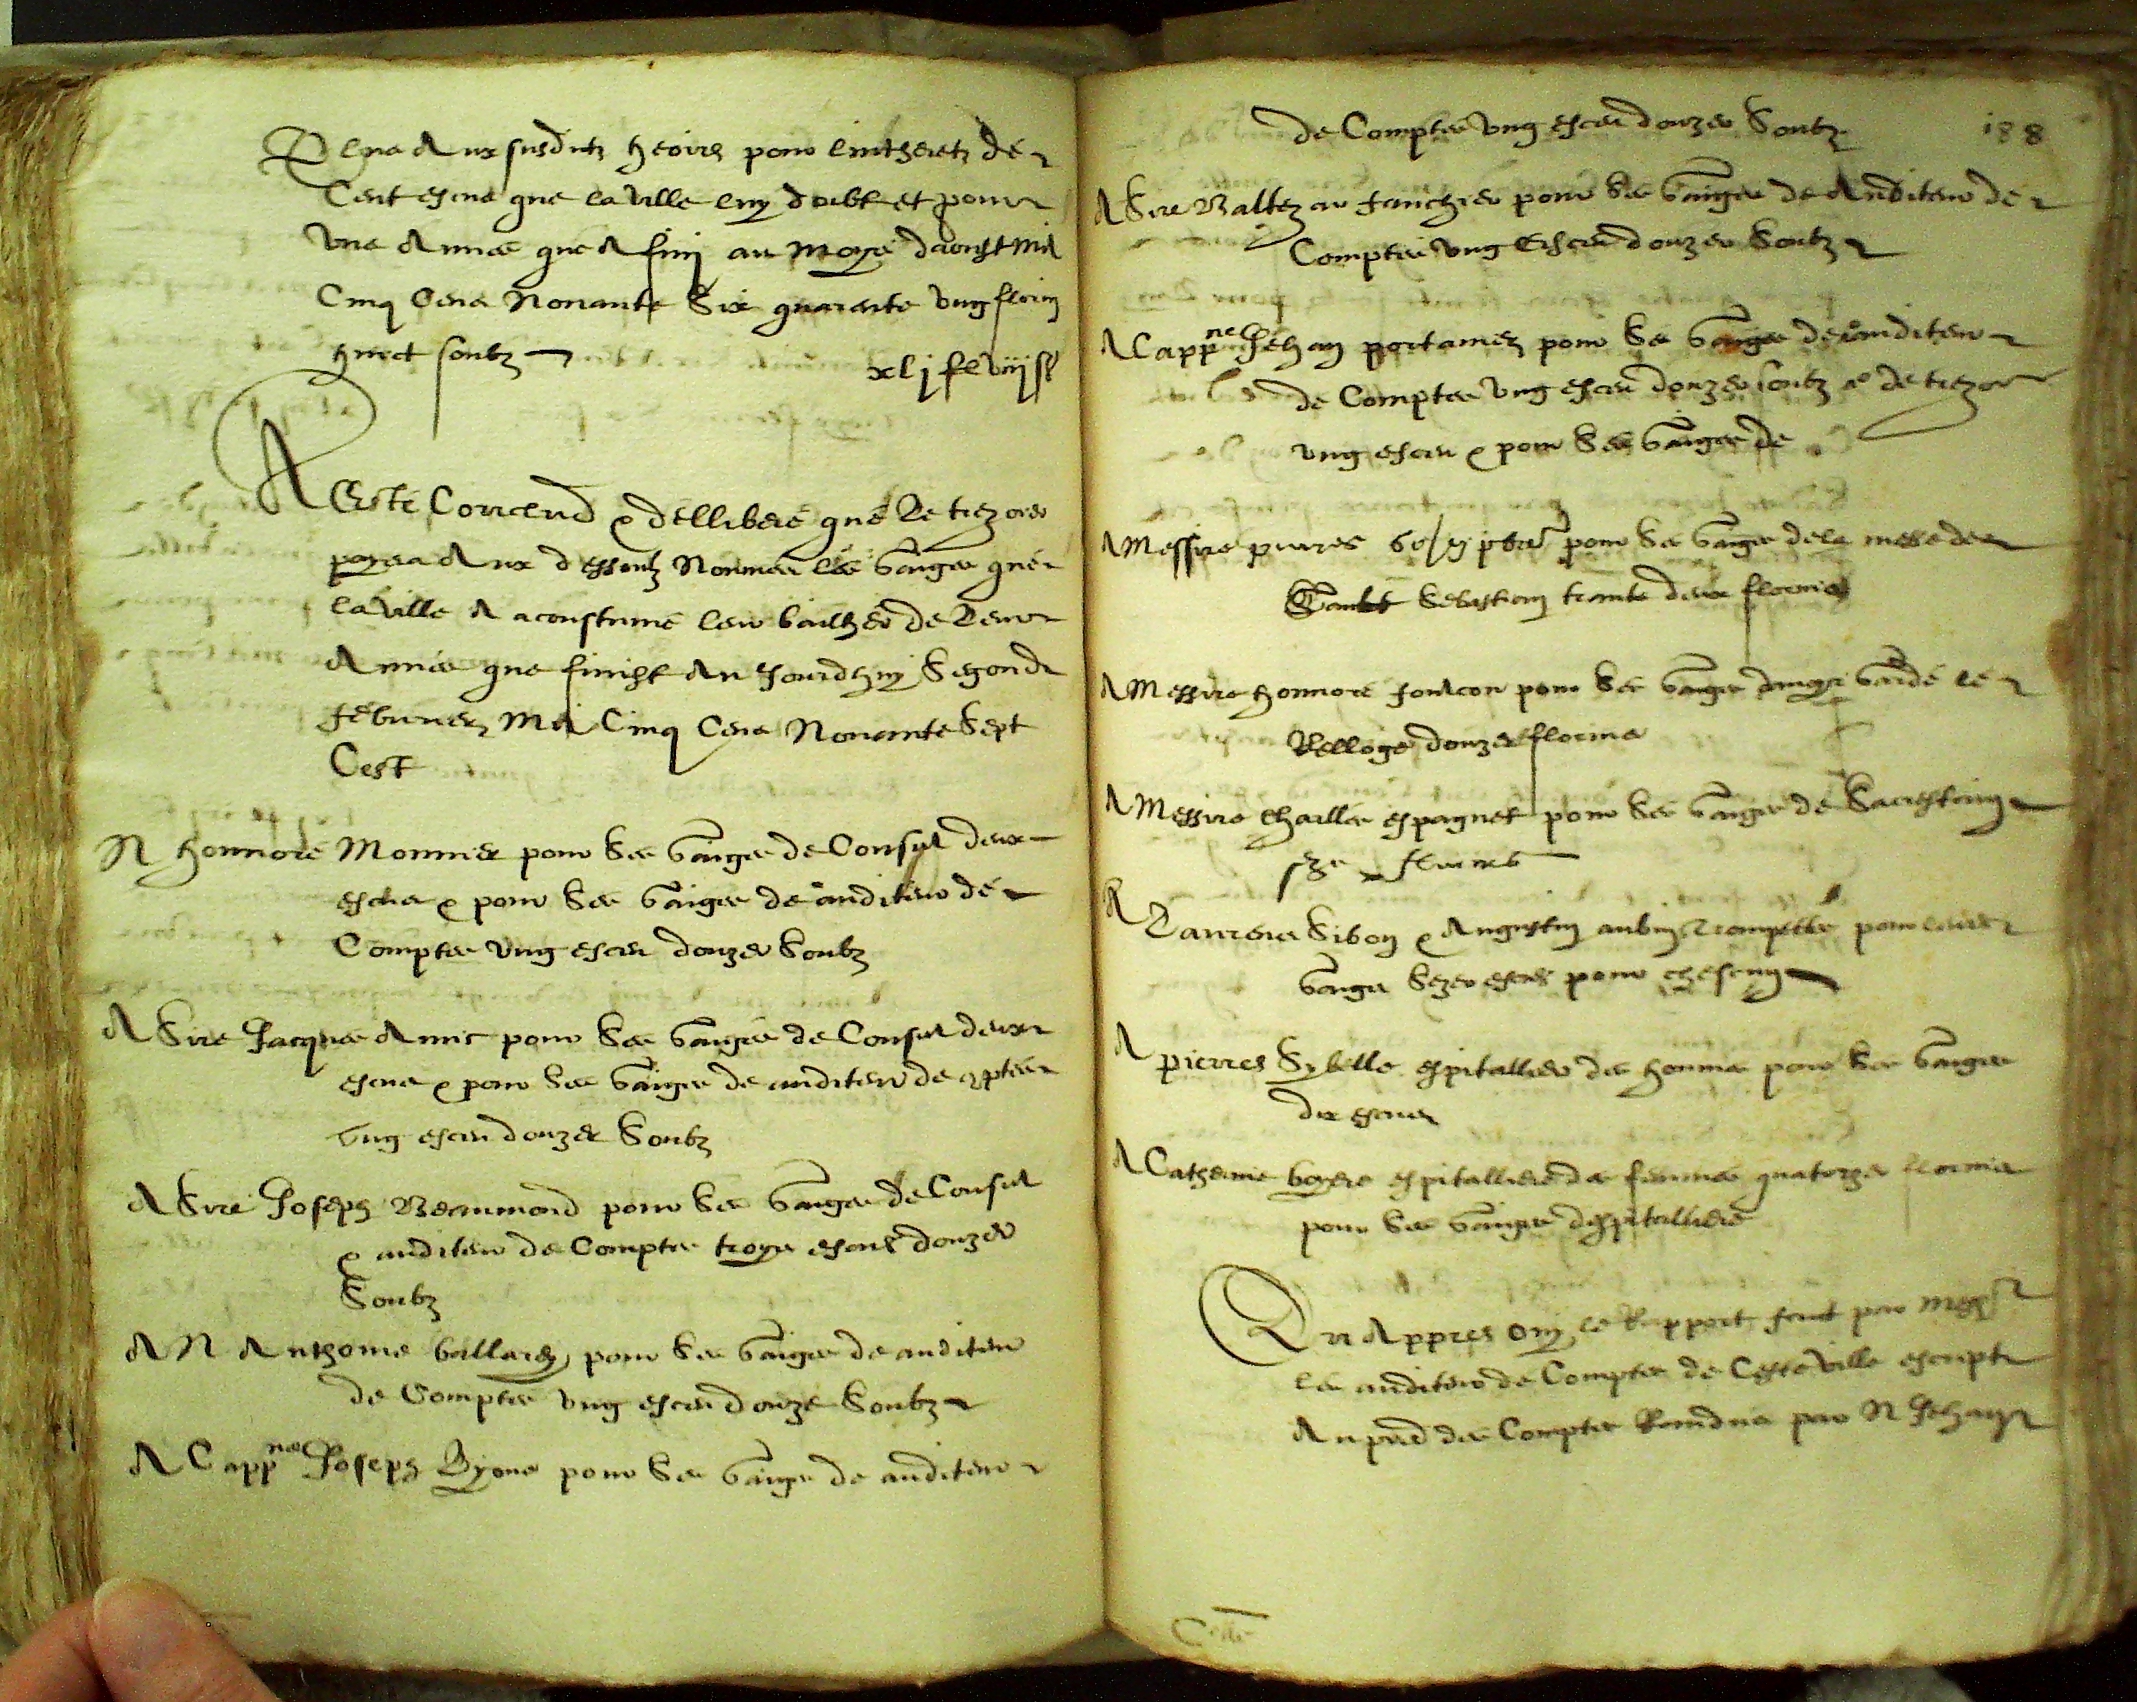 Plus Aux susdutz heoirs pour lintheretz de
Cent escus que la ville luy doibt et pour
Une Annee que A finj au Moys daoust Mil
Cinq Cens Nonante Six quarante ung florin
huict soubz xlj fl viij s
A Esté Conclud & dellibere que Le trezorier
payera Aux dessoubz Nommes les Gaiges que
la ville A acoustume leur bailher de Leur
Annee que finist Au Jourdhuy Segond
febvrier Mil Cinq Cens Nonante Sept
Cest
A honnoré Monnier pour Ses Gaiges de Consul deux
escus & pour Ses Gaiges de auditeur de
Comptes ung escu douze Soubz
A Sire Jacques Amic pour Ses Gaiges de Consul deux
escus & pour Ses Gaiges de auditeur de cptes
Ung escu douze Soubz
A Sire Joseph Beaumond pour Ses Gaiges de Consul
& auditeur de Comptes troys escus douze
Soubz
A N Anthome ballard pour Ses Gaiges de auditeur
de Comptes ung escu douze Soubz
A Cappne Joseph Ryons pour Ses Gaiges de auditeur
188
de Comptes ung escu douze Soubz
A Sire Baltezar fauchier pour Ses Gaiges de Auditeur de
Comptes ung Escu douze Soubz
A Cappne Jehan portanier pour Ses Gaiges de auditeur
de Comptes ung escu douze soubz & de trezorier
ung escu & pour Ses Gaiges de
A Messire pierres pbre pour Ses Gaiges de la messe de
Sainct Sebastian trante deux florins
A Messire honnore foulcon pour Ses Gaiges davoyr Gardé le
Relloge douze florins
A Messire Charlles espagnet pour Ses Gaiges de Sacrestain
seze florins
A Laurens Sibon & Augustin aubin Trompettes pour leurs
Gaiges Seze escus pour chescung
A pierres Sybille espitallier des hommes pour Ses Gaiges
dix escus
A Catherine boyere espitalliere des femmes quatorze florins
pour Ses Gaiges despitalliere
Qui Appres ouy le Rapport faict par messrs
les auditeurs de Comptes de Ceste ville escript
Au pied des Comptes Randus par N Jehan